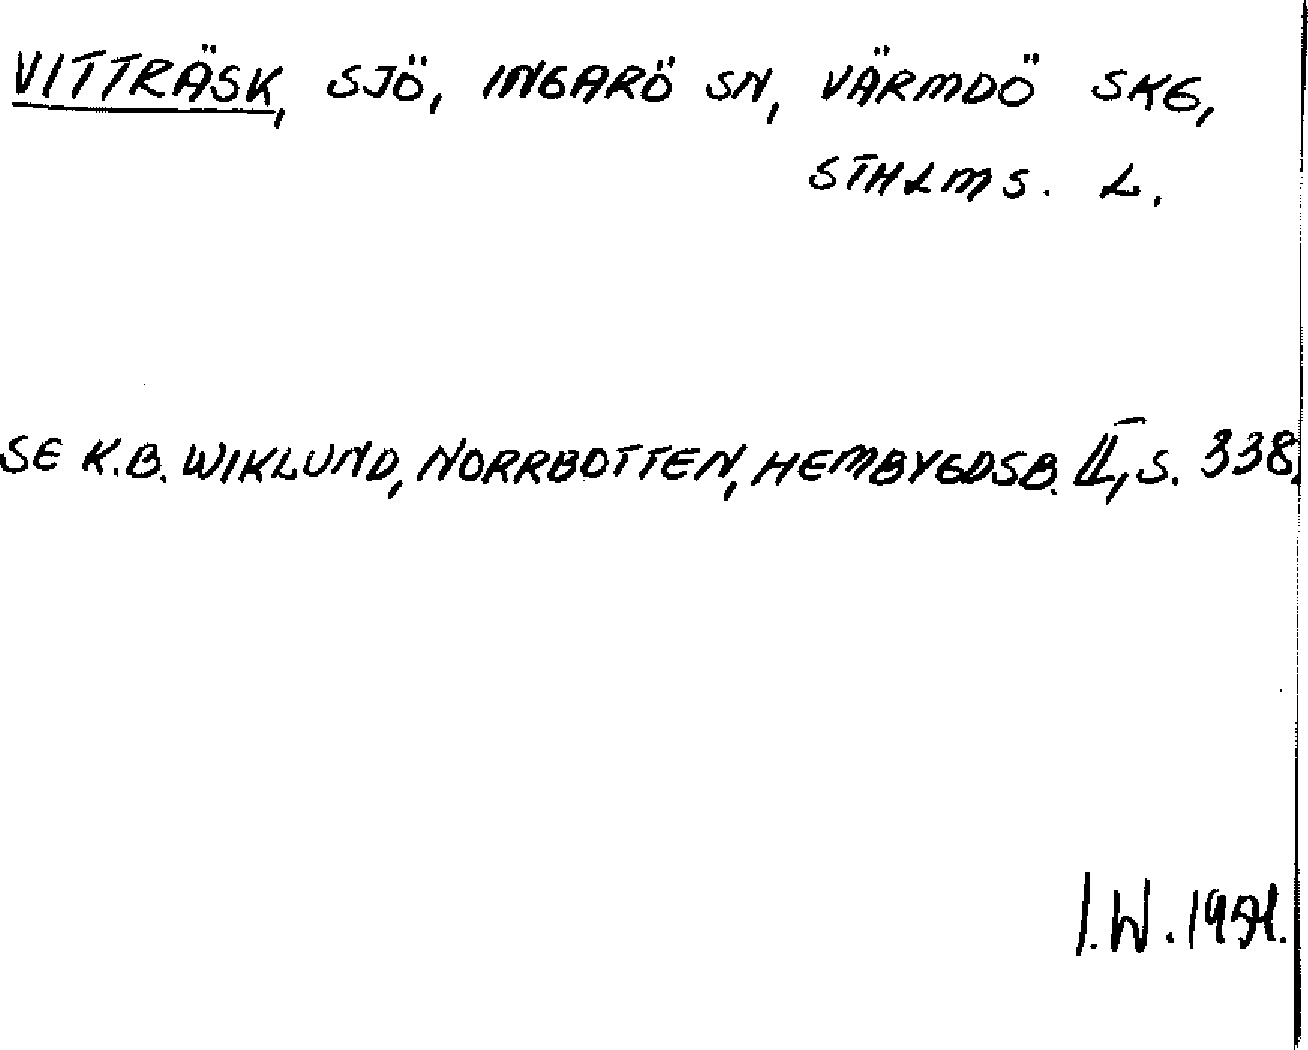 VITTRÄSK, SJÖ, INGARÖ SN, VÄRMDÖ SKG,
STHLMS. L.
SE K.B. WIKLUND, NORRBOTTEN, HEMBYGDSB. II, S. 338.
I.W. 1951.